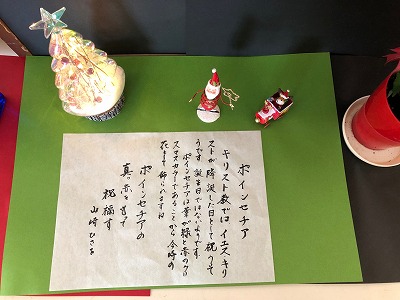 ポインセチア
キリスト教では イエスキリ
ストが降誕した日として祝って
います 誕生日ではないようです
ポインセチアは葉が緑と赤のクリ
スマスカラーであることから 今時の
花として 飾られますね
ポインセチアの
真っ赤を生けて
祝福す
山崎ひさを